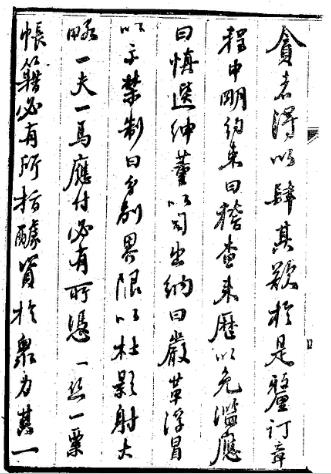 貪者得以肆其欺於是釐訂章
程申明約束曰稽查来歷以免濫應
曰慎選紳董以司出納曰嚴革浮冒
以示禁制曰分別界限以杜影射大
略一夫一馬應付必有所憑一丝一粟
帳籍必有所稽醵資於衆力甚一